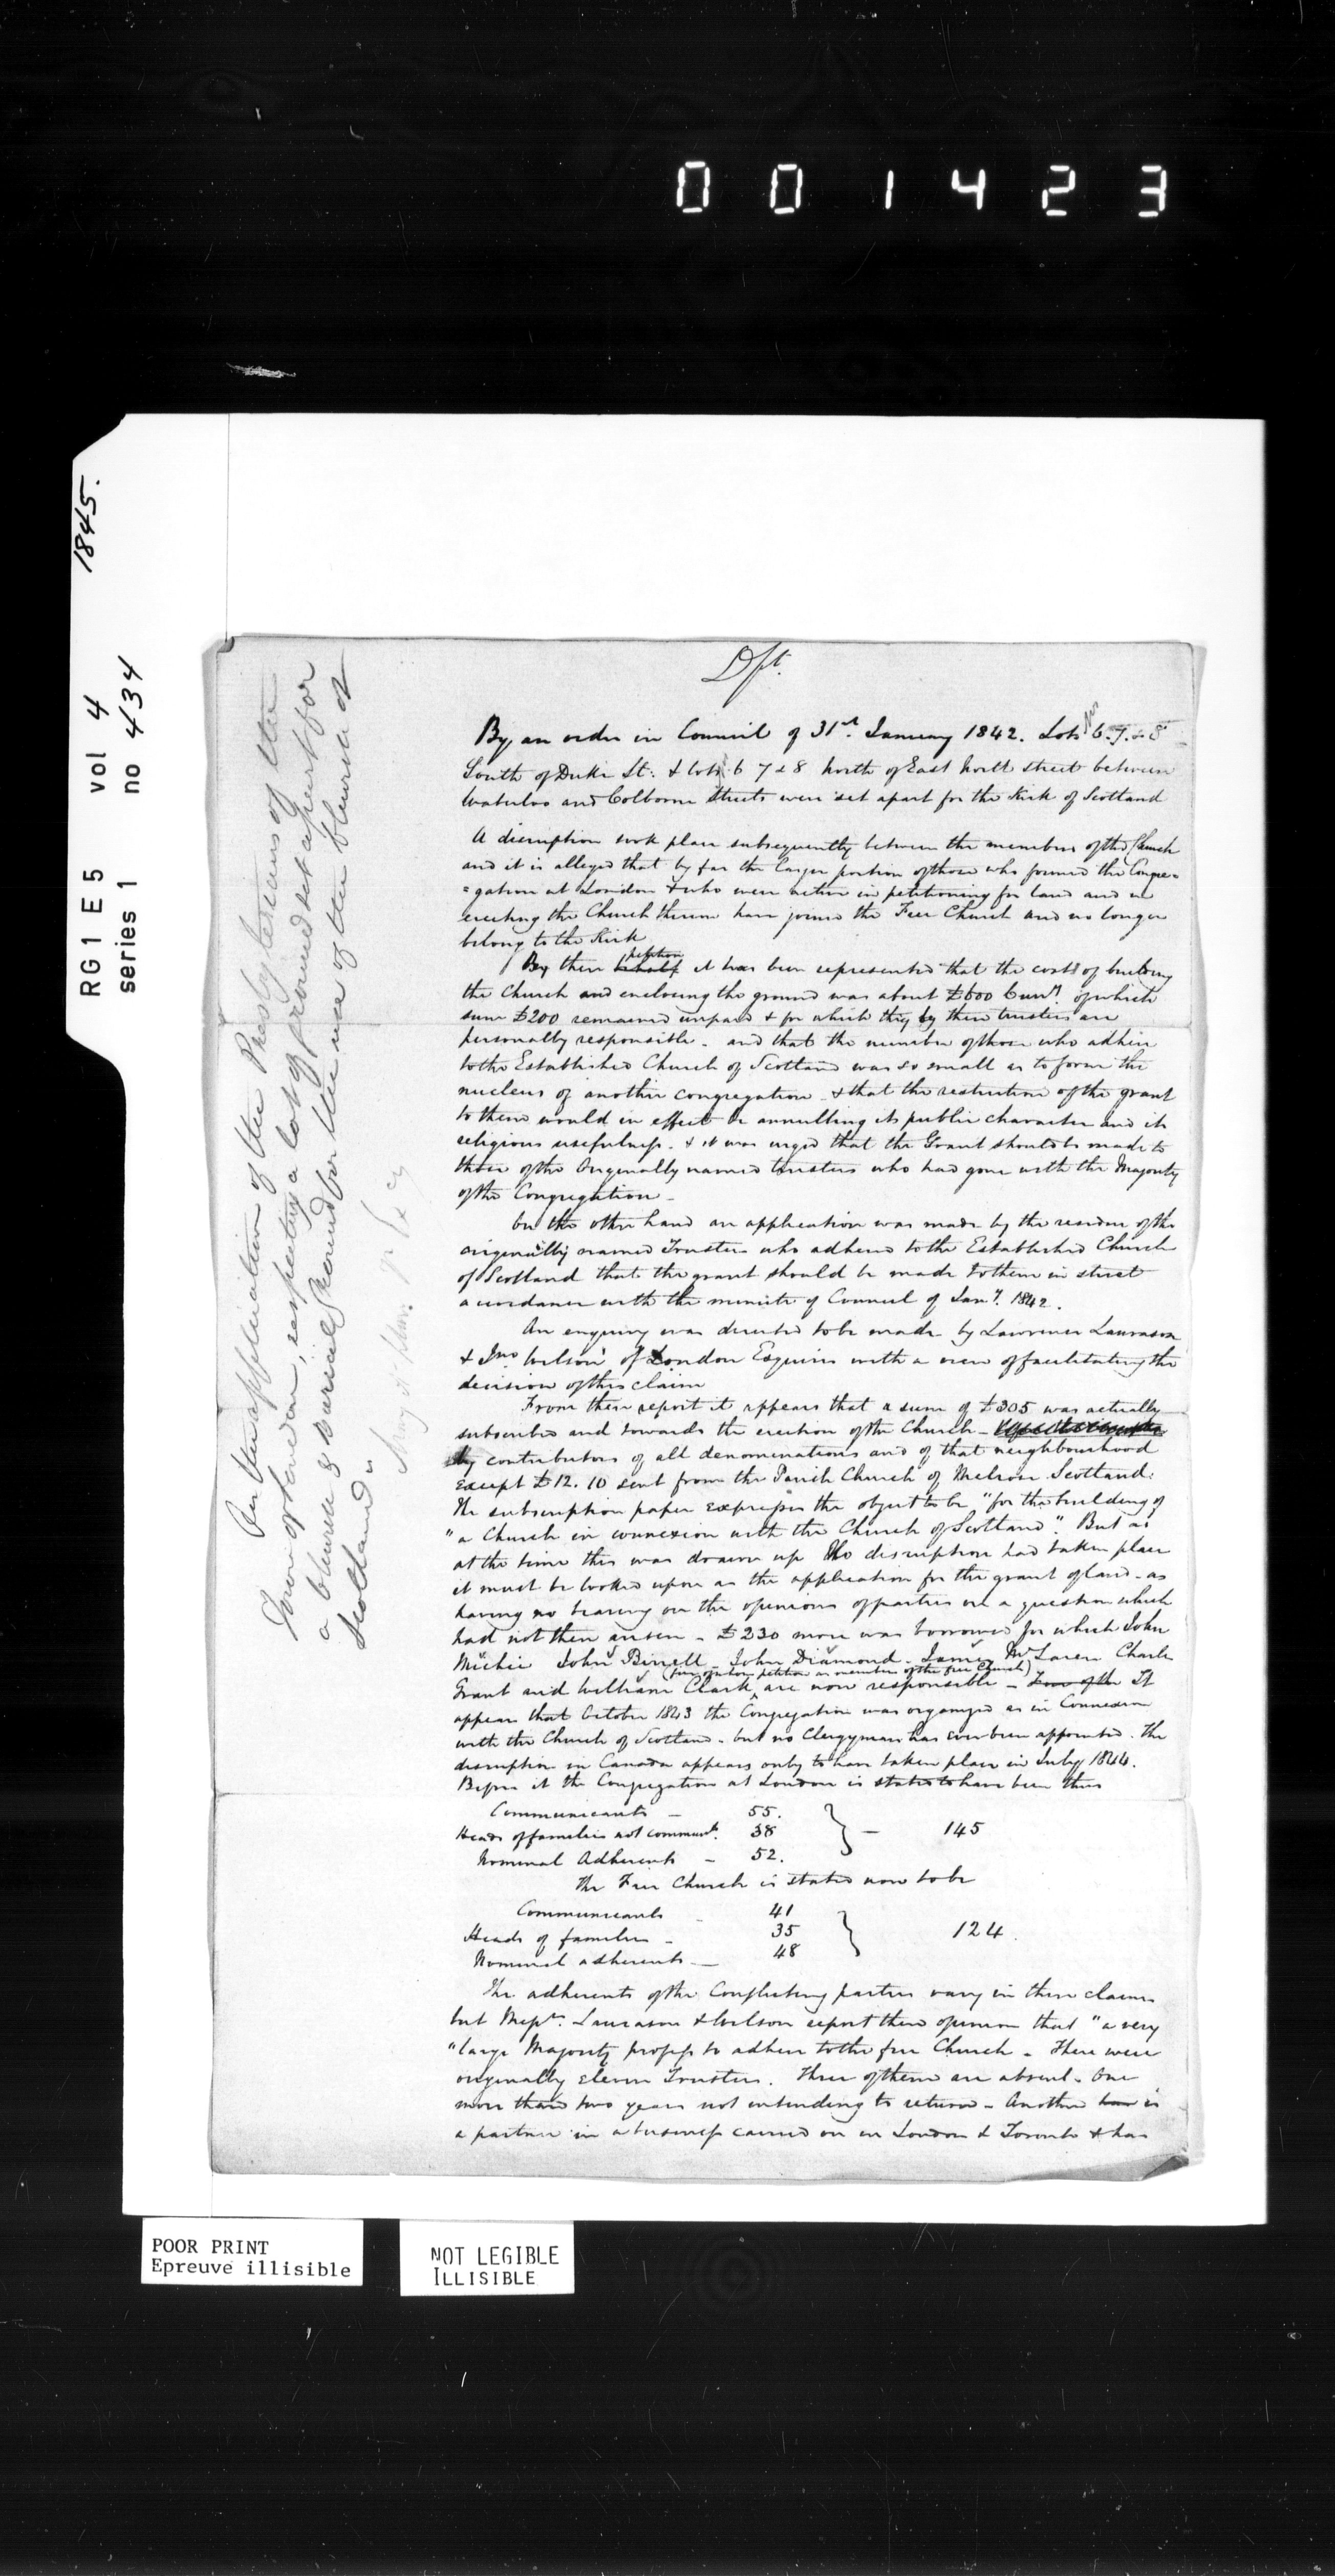 001423
1845.
RG1 E5 vol 4
series 1 no 434
Dft.
On the application of the Presbyterians of the
Town of London, respecting a lot of ground set apart for
a church & burial ground for the use of the church of
Scotland"
By an order in Council of 31st January 1842. Lots Nos 6. 7. & 8
South of Duke St: & lots 6 7 & 8 North of East North street between
Waterloo and Colborne Streets were set apart for the Kirk of Scotland
A disruption took place subsequently between the members of this Church
and it is alleged that by far the larger portion of those who formed the Congre=
=gation at London & who were active in petitioning for land and in
erecting the Church thereon have joined the Free Church and no longer
belong to the Kirk
By their petition it has been represented that the cost of building
the Church and enclosing the ground was about £600 Curry of which
sum £200 remained unpaid & for which they by their trustees are
personally responsible. and that the number of those who adhere
to the Established Church of Scotland was so small as to form the
nucleus of another congregation & that the restriction of the grant
to them would in effect be annulling its public character and its
religious usefulness. & it was urged that the Grant should be made to
those of the Originally named trustees who had gone with the Majority
of the Congregation -
On the other hand an application was made by the residue of the
originally named Trustees who adhered to the Established Church
of Scotland that the grant should be made to them in strict
accordance with the minute of Council of Jany. 1842.
An enquiry was directed to be made by Lawrence Laurason
& Jno Wilson of London Esquires with a view of facilitating the
decision of this claim
From their report it appears that a sum of £305 was actually
subscribed and towards the erection of the Church -
by contributors of all denominations and of that neighbourhood
except £12. 10 sent from the Parish Church of Melrose Scotland:
The subscription paper expresses the object to be "for the building of
"a Church in connexion with the Church of Scotland". But as
at the time this was drawn up No disruption had taken place
it must be looked upon as the application for the grant of land - as
having no bearing on the opinions of parties on a question which
had not then arisen - £230 more was borrowed for which John
Michie John Birrell John Diamond - James McLaren Charles
(four of whom petition as members of the free Church)
Grant and William Clark are now responsible - Four of the It
appears that October 1843 the Congregation was organized as in Connexion
with the Church of Scotland - but no Clergyman has ever been appointed. The
disruption in Canada appears only to have taken place in July 1844.
Before it the Congregation at London is stated to have been thus
Communicants - 55.
Heads of families not communts. 38 } - 145
Nominal Adherents - 52.
The Free Church is stated now to be
Communicants - 41
Heads of families - 35 } 124.
Nominal adherents - 48
The adherents of the Conflicting parties vary in their claims
but Messrs. Laurason & Wilson report their opinion that "a very
"large Majority profess to adhere to the free Church - There were
originally eleven Trustees. Three of them are absent - One
more than two years not intending to return - Another has is
a partner in a business carried on in London & Toronto & has
POOR PRINT
Epreuve illisible
NOT LEGIBLE
ILLISIBLE